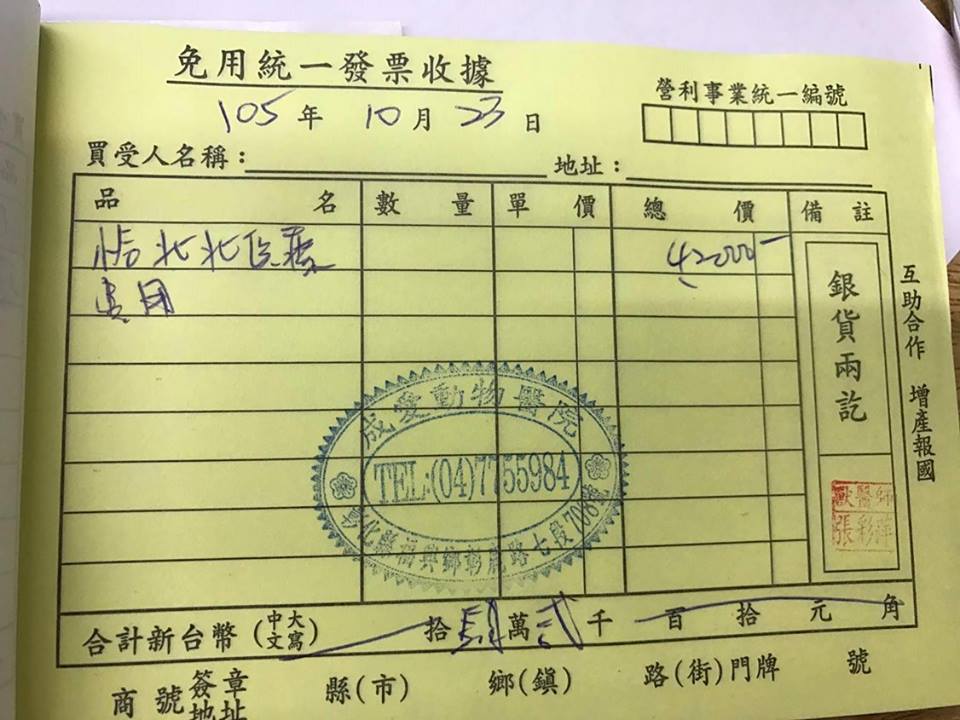 免用統一發票收據
營利事業統一編號
105年 10月 23日
買受人名稱： 地址：
品名 數量 單價 總價 備註
北北医療 42000-
費用
銀貨兩訖
互助合作 增產報國
成愛動物醫院
TEL:(04)7755984
彰化縣福興鄉彰鹿路七段708號
獸醫師
張彩萍
合計新台幣(中文大寫) 拾肆萬貳千百拾元角
商號簽章地址 縣(市) 鄉(鎮) 路(街)門牌 號